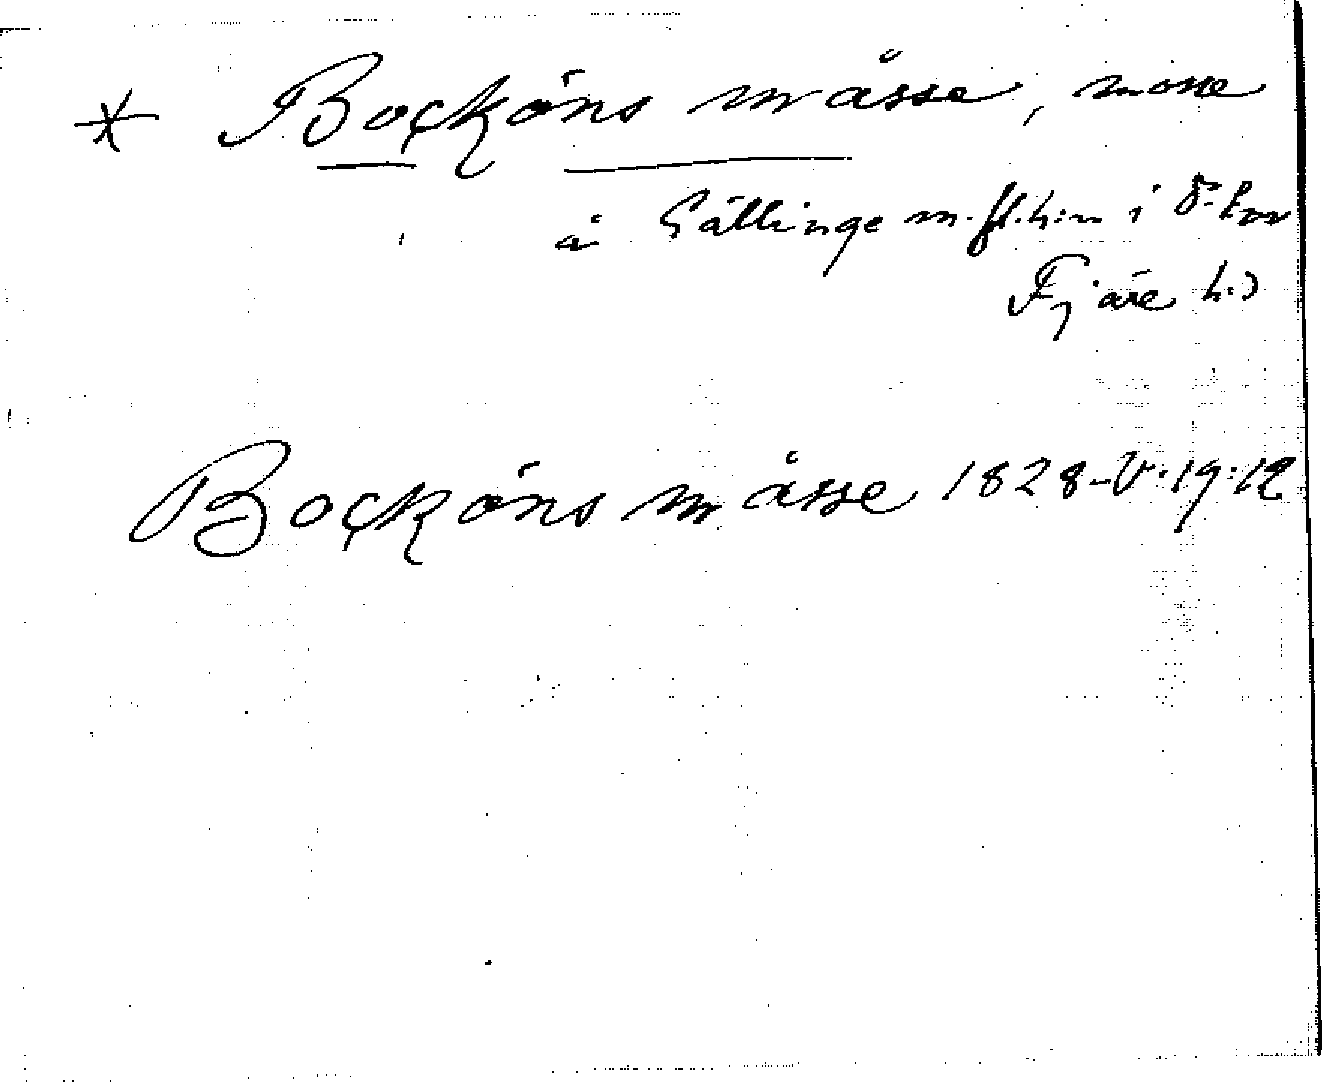 * Bocköns måsse, mosse
å Gällinge m.fl. h:n i d:o sn
Fjäre h:d
Bocköns måsse 1828-V:19:12